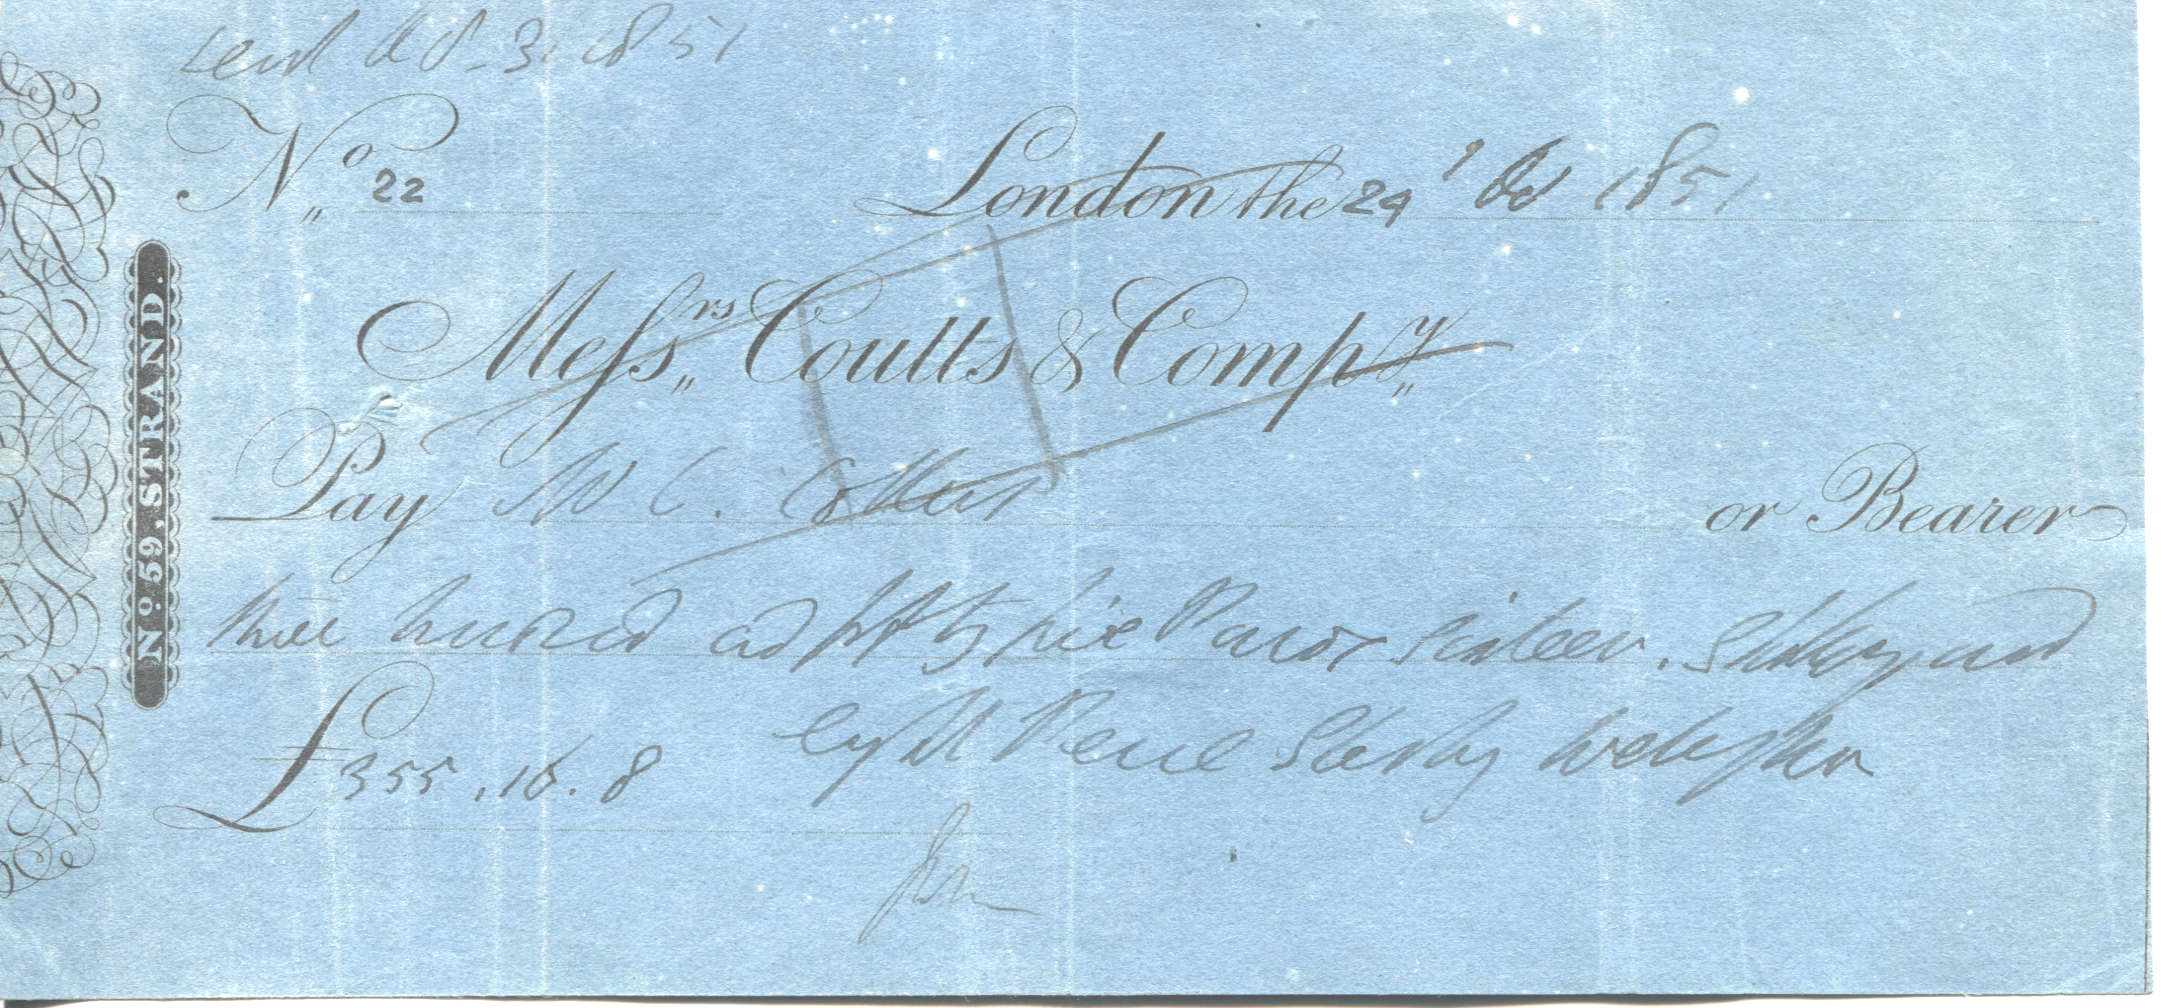 1851
No. 22
London the 29 Oct 1851
Messrs Coutts & Compy
Pay W C. or Bearer
three hundred and fifty five Pounds sixteen. Shillings and
eight Pence Sterling
£355.16.8
No. 59, STRAND.